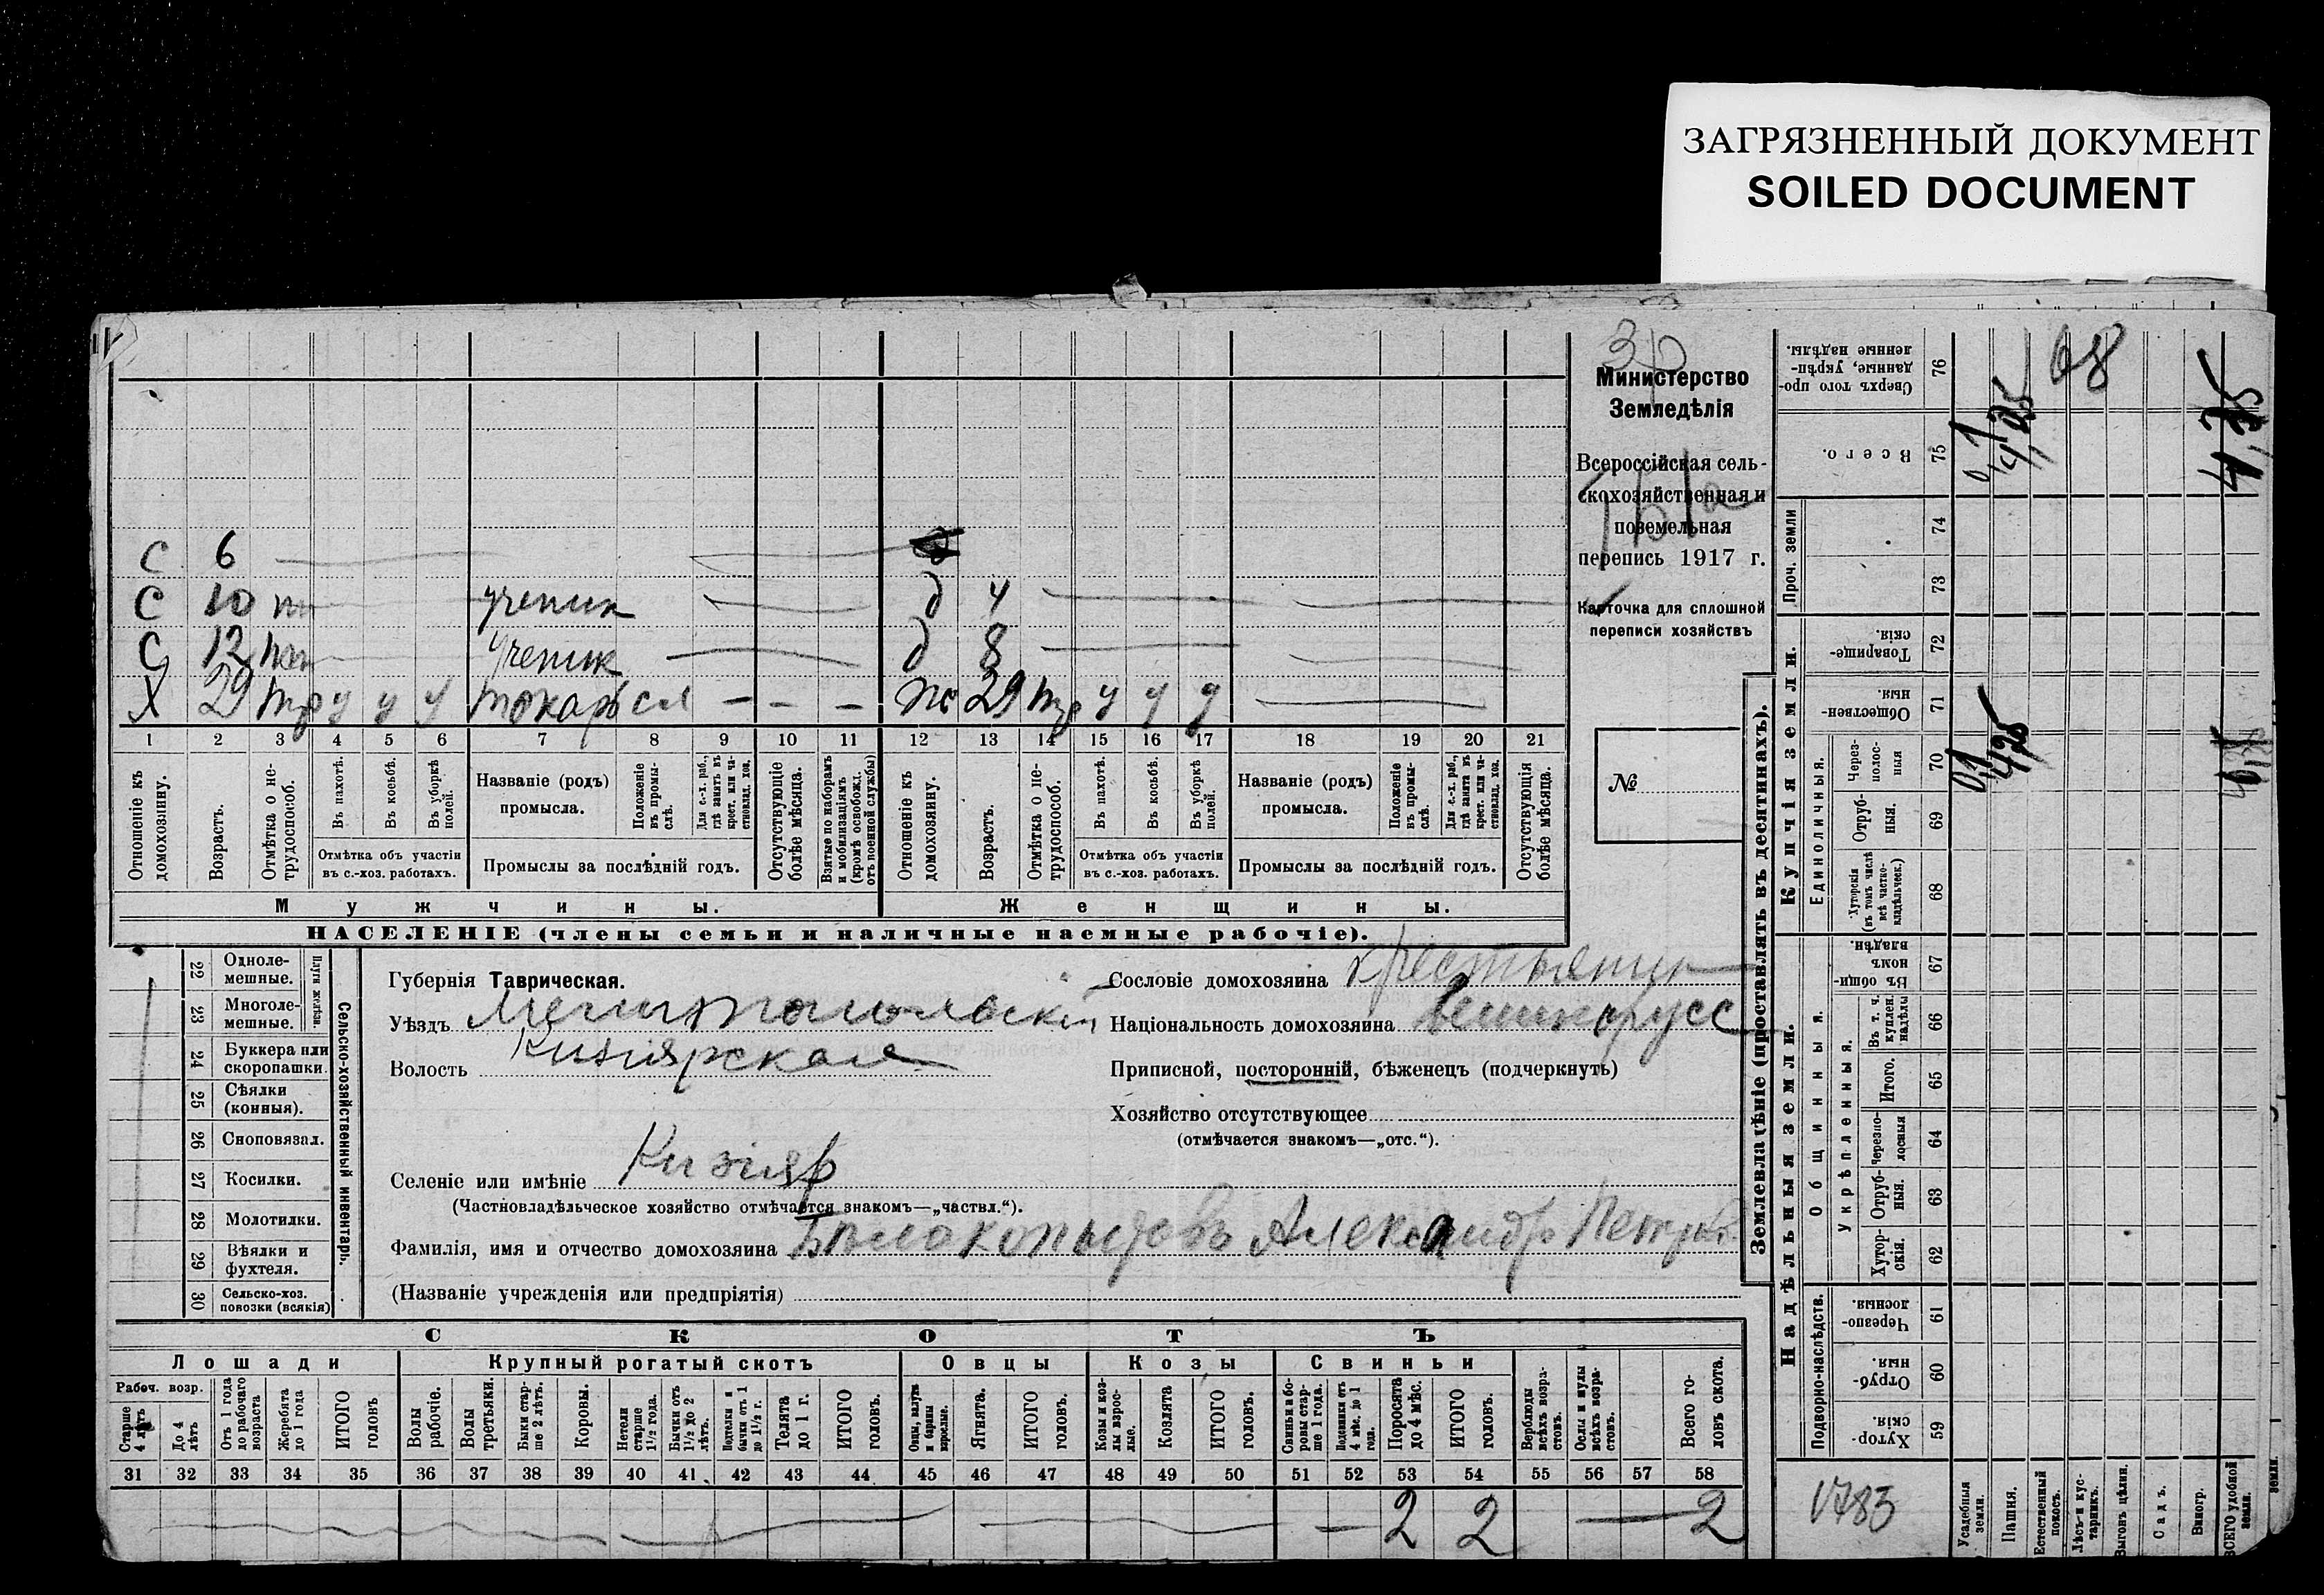 ЗАГРЯЗНЕННЫЙ ДОКУМЕНТ
SOILED DOCUMENT
С 6
С 10 ученик д 4
С 12 ученик д 8
Х 29 у у у токарь — — — 29 у у у
1 2 3 4 5 6 7 8 9 10 11 12 13 14 15 16 17 18 19 20 21
Отношеніе къ домохозяину.
Возрастъ.
Отмѣтка о не-трудоспособ.
Въ пахотѣ.
Въ косьбѣ.
Въ уборкѣ полей.
Отмѣтка объ участіи въ с.-хоз. работахъ.
Названіе (родъ) промысла.
Положеніе въ промы-слѣ.
Для с.-х. раб., гдѣ занятъ въ крест. или ча-стновлад. хоз.
Промыслы за послѣдній годъ.
Отсутствующіе болѣе мѣсяца.
Взятые по наборамъ и мобилизаціямъ (кромѣ освобожд. отъ военной службы)
Отношеніе къ домохозяину.
Возрастъ.
Отмѣтка о не-трудоспособ.
Въ пахотѣ.
Въ косьбѣ.
Въ уборкѣ полей.
Отмѣтка объ участіи въ с.-хоз. работахъ.
Названіе (родъ) промысла.
Положеніе въ промы-слѣ.
Для с.-х. раб., гдѣ занята въ крест. или ча-стновлад. хоз.
Промыслы за послѣдній годъ.
Отсутствующія болѣе мѣсяца.
Мужчины.
Женщины.
НАСЕЛЕНІЕ (члены семьи и наличные наемные рабочіе).
Министерство
Земледѣлія
Всероссійская сель-
скохозяйственная и
поземельная
перепись 1917 г.
Карточка для сплошной
переписи хозяйствъ
№
22 Одноле-мешные.
23 Многоле-мешные.
Плуги желѣзн.
24 Буккера или скоропашки.
25 Сѣялки (конныя).
26 Сноповязал.
27 Косилки.
28 Молотилки.
29 Вѣялки и фухтеля.
30 Сельско-хоз. повозки (всякія)
Сельско-хозяйственный инвентарь.
Губернія Таврическая.
Уѣздъ Мелитопольскій
Волость Кизіярская
Селеніе или имѣніе Кизіяр
(Частновладѣльческое хозяйство отмѣчается знакомъ—„частвл.“).
Фамилія, имя и отчество домохозяина Бѣлокопытовъ Александр Петров
(Названіе учрежденія или предпріятія)
Сословіе домохозяина крестьянин
Національность домохозяина великорусс
Приписной, посторонній, бѣженецъ (подчеркнуть)
Хозяйство отсутствующее
(отмѣчается знакомъ—„отс.“).
СКОТЪ
Лошади
Крупный рогатый скотъ
Овцы
Козы
Свиньи
Рабоч. возр.
Старше 4 лѣтъ
До 4 лѣтъ
Отъ 1 года до рабочаго возраста
Жеребята до 1 года
ИТОГО головъ
Волы рабочіе.
Волы третьяки.
Быки стар-ше 2 лѣтъ.
Коровы.
Нетели старше 1½ года.
Бычки отъ 1½ до 2 лѣтъ.
Подтелки и бычки отъ 1 до 1½ г.
Телята до 1 г.
ИТОГО головъ.
Овцы, валухи и бараны взрослые.
Ягнята.
ИТОГО головъ.
Козы и коз-лы взрос-лые.
Козлята
ИТОГО головъ.
Свиньи и бо-ровы стар-ше 1 года.
Подсвинки отъ 4 мѣс. до 1 года.
Поросята до 4 мѣс.
ИТОГО головъ.
Верблюды всѣхъ возра-стовъ.
Ослы и мулы всѣхъ возра-стовъ.
Всего го-ловъ скота.
31 32 33 34 35 36 37 38 39 40 41 42 43 44 45 46 47 48 49 50 51 52 53 54 55 56 57 58
2 2 2
Землевладѣніе (проставлять въ десятинахъ).
Сверхъ того про-данные, укрѣп-ленные надѣлы. 76 68
Всего. 75 0,1 4,25 4,35
Проч. земли 74 73
Купчія земли.
Товарище-скія. 72
Обществен-ныя. 71
Единоличныя.
Через-полос-ныя 70 0,1 4,25
Отруб-ныя. 69
Хуторскія (въ томъ числѣ всѣ частно-владѣльческ.) 68
Надѣльныя земли.
Въ общи-номъ владѣн. 67
Общинныя.
Укрѣпленныя.
Въ т. ч. куплен. надѣлы 66
Итого. 65
Черезпо-лосныя 64
Отруб-ныя. 63
Хутор-скія. 62
Подворно-наслѣдств.
Черезпо-лосныя 61
Отруб-ныя. 60
Хутор-скія 59
1783
Усадебныя земли.
Пашня.
Естественный покосъ.
Лѣсъ и кус-тарникъ.
Выгонъ цѣлин.
Садъ.
Виногр.
ВСЕГО удобной земли.
земли.